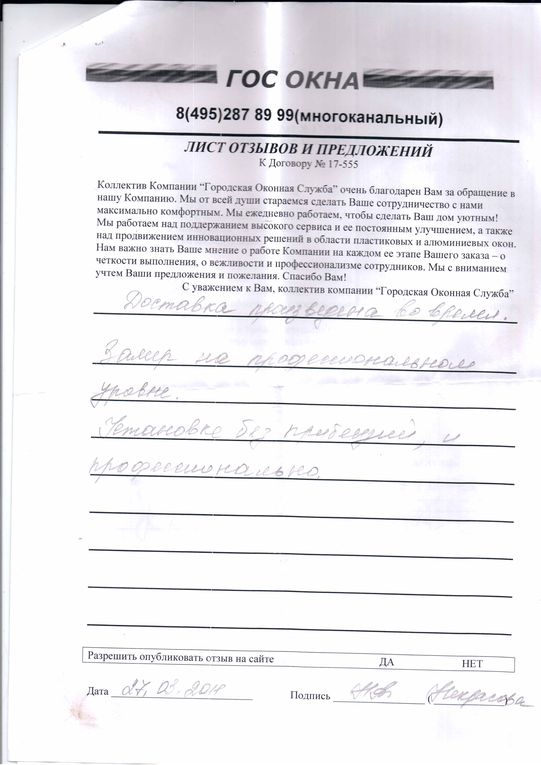 ГОС ОКНА
8(495)287 89 99(многоканальный)
ЛИСТ ОТЗЫВОВ И ПРЕДЛОЖЕНИЙ
К Договору № 17-555
Коллектив Компании “Городская Оконная Служба” очень благодарен Вам за обращение в
нашу Компанию. Мы от всей души стараемся сделать Ваше сотрудничество с нами
максимально комфортным. Мы ежедневно работаем, чтобы сделать Ваш дом уютным!
Мы работаем над поддержанием высокого сервиса и ее постоянным улучшением, а также
над продвижением инновационных решений в области пластиковых и алюминиевых окон.
Нам важно знать Ваше мнение о работе Компании на каждом ее этапе Вашего заказа – о
четкости выполнения, о вежливости и профессионализме сотрудников. Мы с вниманием
учтем Ваши предложения и пожелания. Спасибо Вам!
С уважением к Вам, коллектив компании “Городская Оконная Служба”
Доставка произведена во время.
Замер на профессиональном
уровне.
Установка без и
профессионально.
Разрешить опубликовать отзыв на сайте ДА НЕТ
Дата 27.03.2017 Подпись (Некрасова)